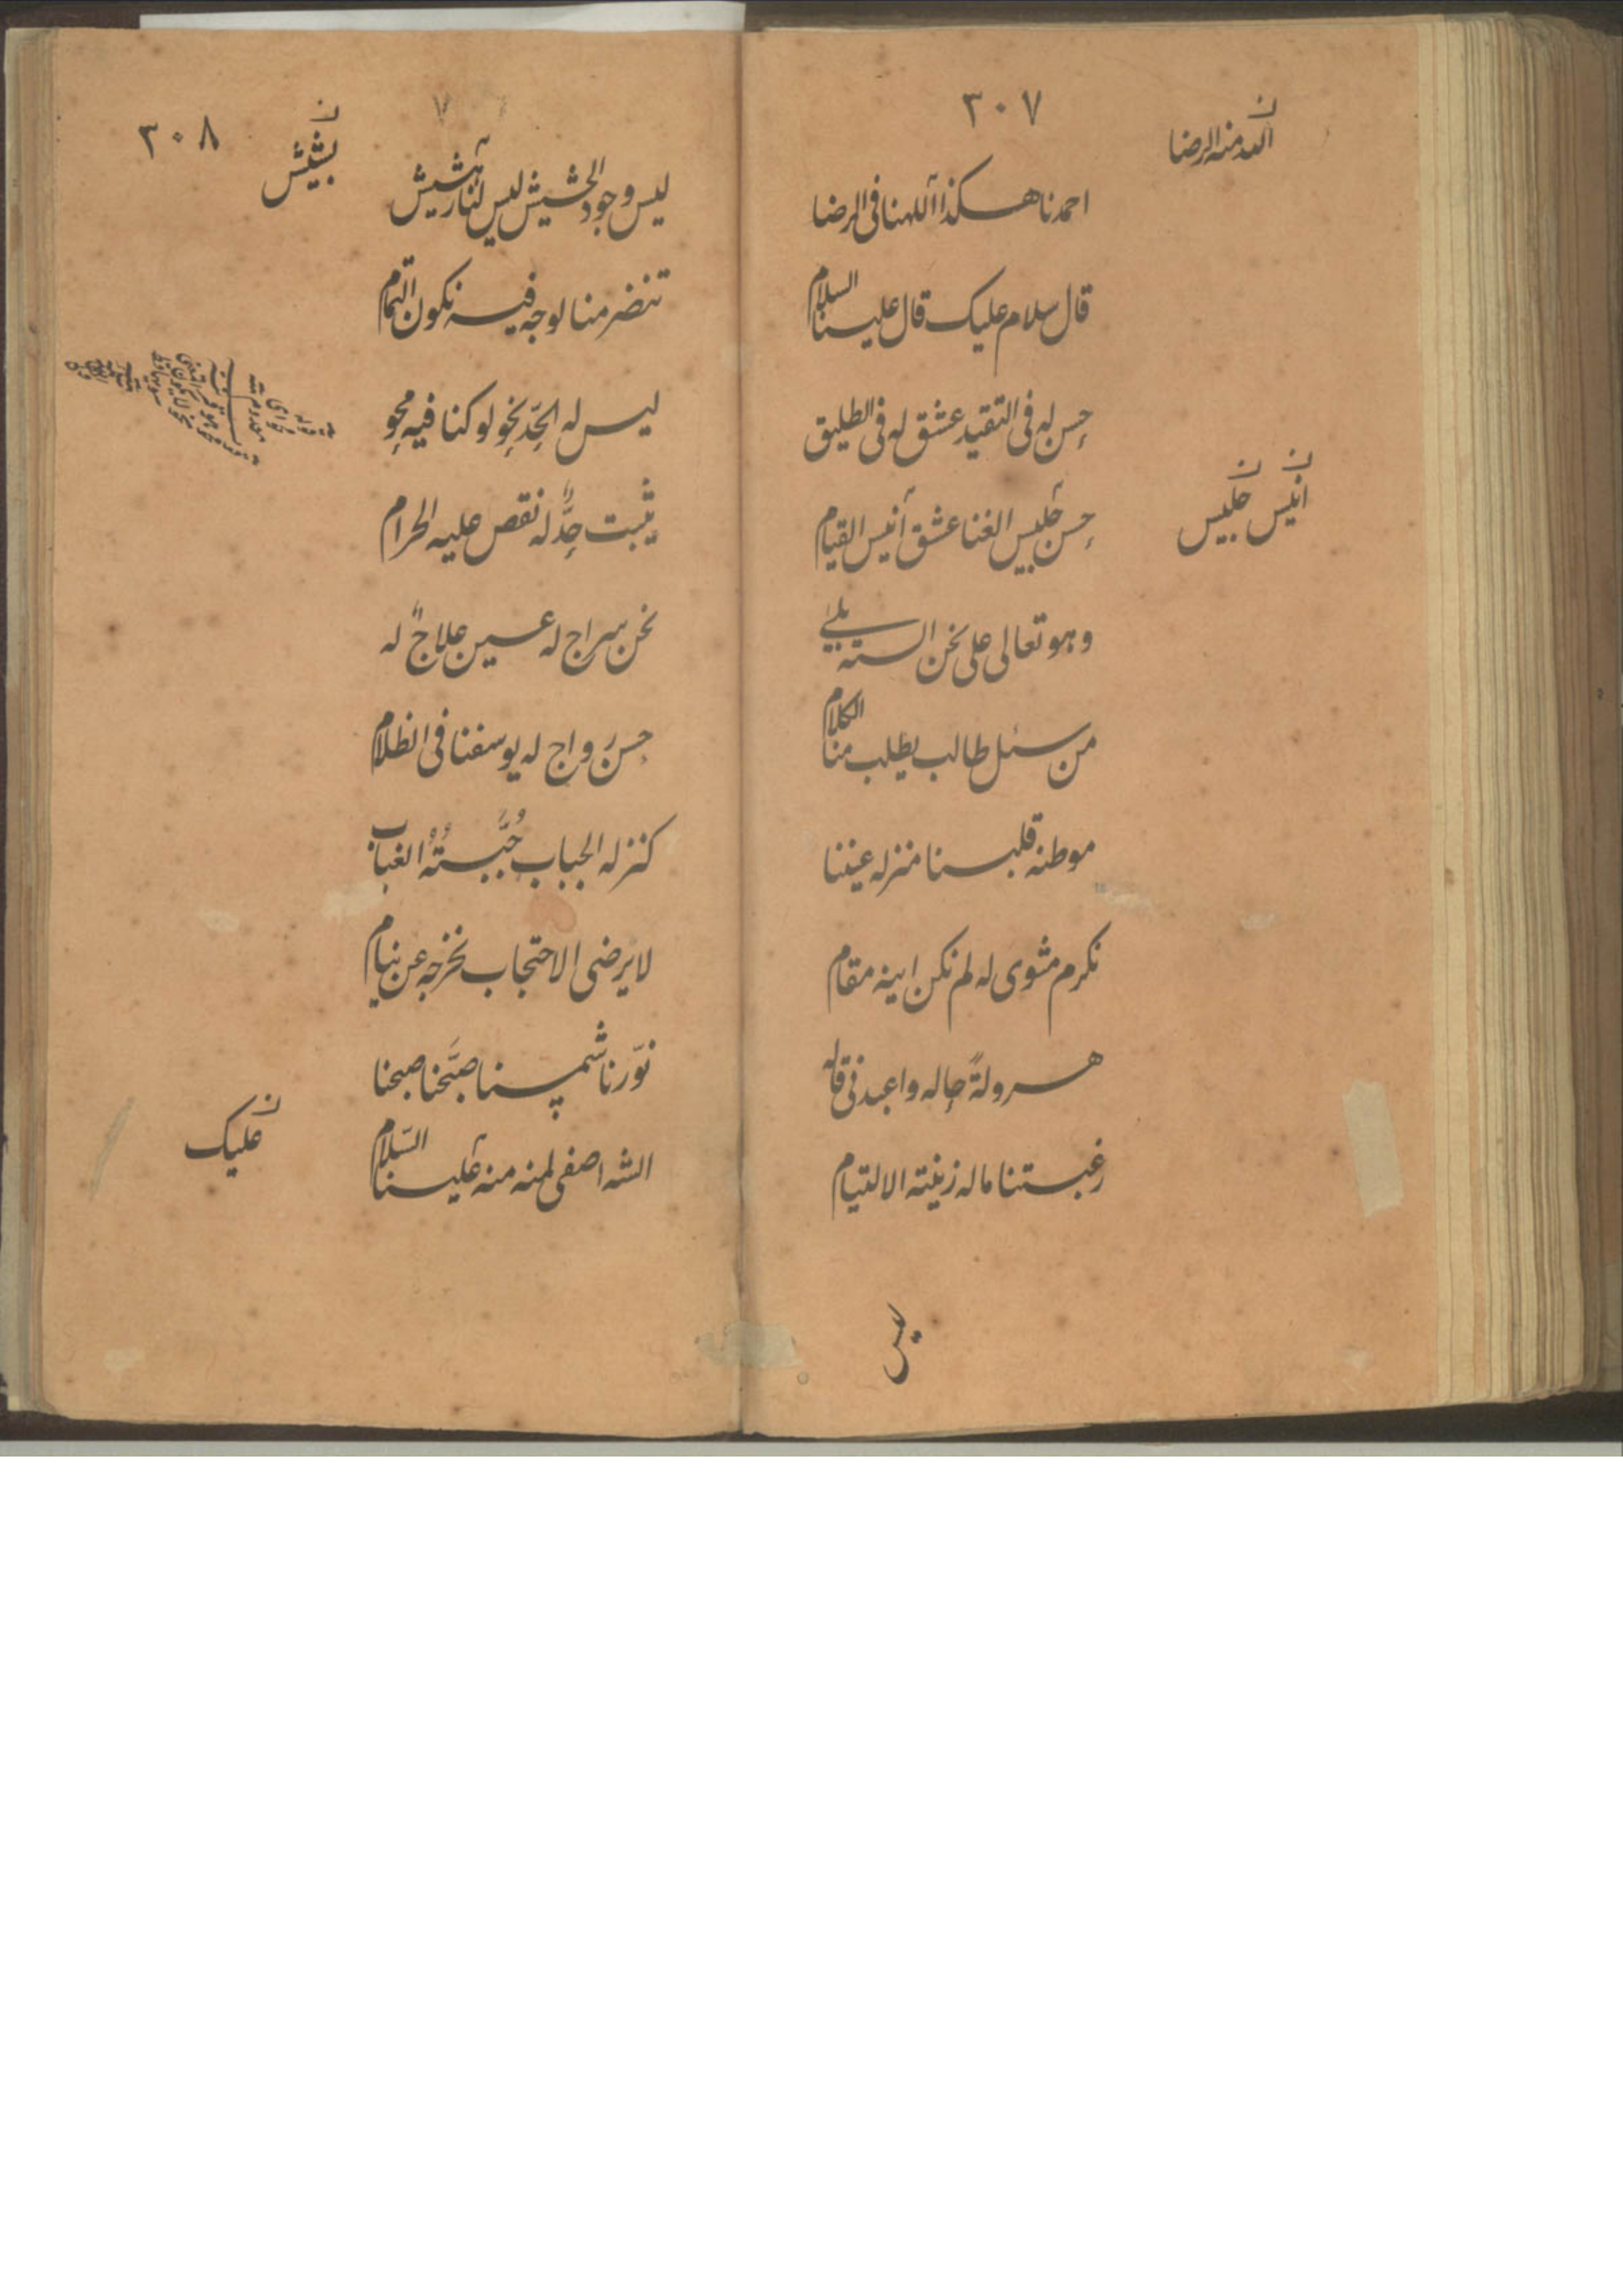 ٣٠٧
ن
الله منه الرضا
احمدنا هكذا اللهنا فى الرضا
قال سلام عليك قال علينا السلام
حسن له فى التقيد عشق له فى الطليق
ن ن
انيس جليس
حسن جليس الغنا عشق انيس القيام
وهو تعالى على نحن السته بلى
من سئل طالب يطلب منا الكلام
موطنه قلبنا منزله عيننا
نكرم مثوى له لم نكن اينه مقام
هرولةً جاله واعبدنى قاله
رغبتنا ماله زينته الالتيام
ليس
٣٠٨
ن
بشيش
ليس وجود الحشيش ليس لنا
تنضر منا لوجه فيه نكون التمام
ليس له الجد نحو لو كنا فيه محو
يثبت جدٌّ له نقص عليه الحرام
نحن سراج له عين علاجٌ له
حسن رواج له يوسفنا فى الظلام
كنز له الجباب الغباب
لا يرضى الاحتجاب نخرجه عن نيام
نوّرنا شمسنا صبَّحنا صبحنا
ن
عليك
الله اصفى لمنه منه علينا السّلام